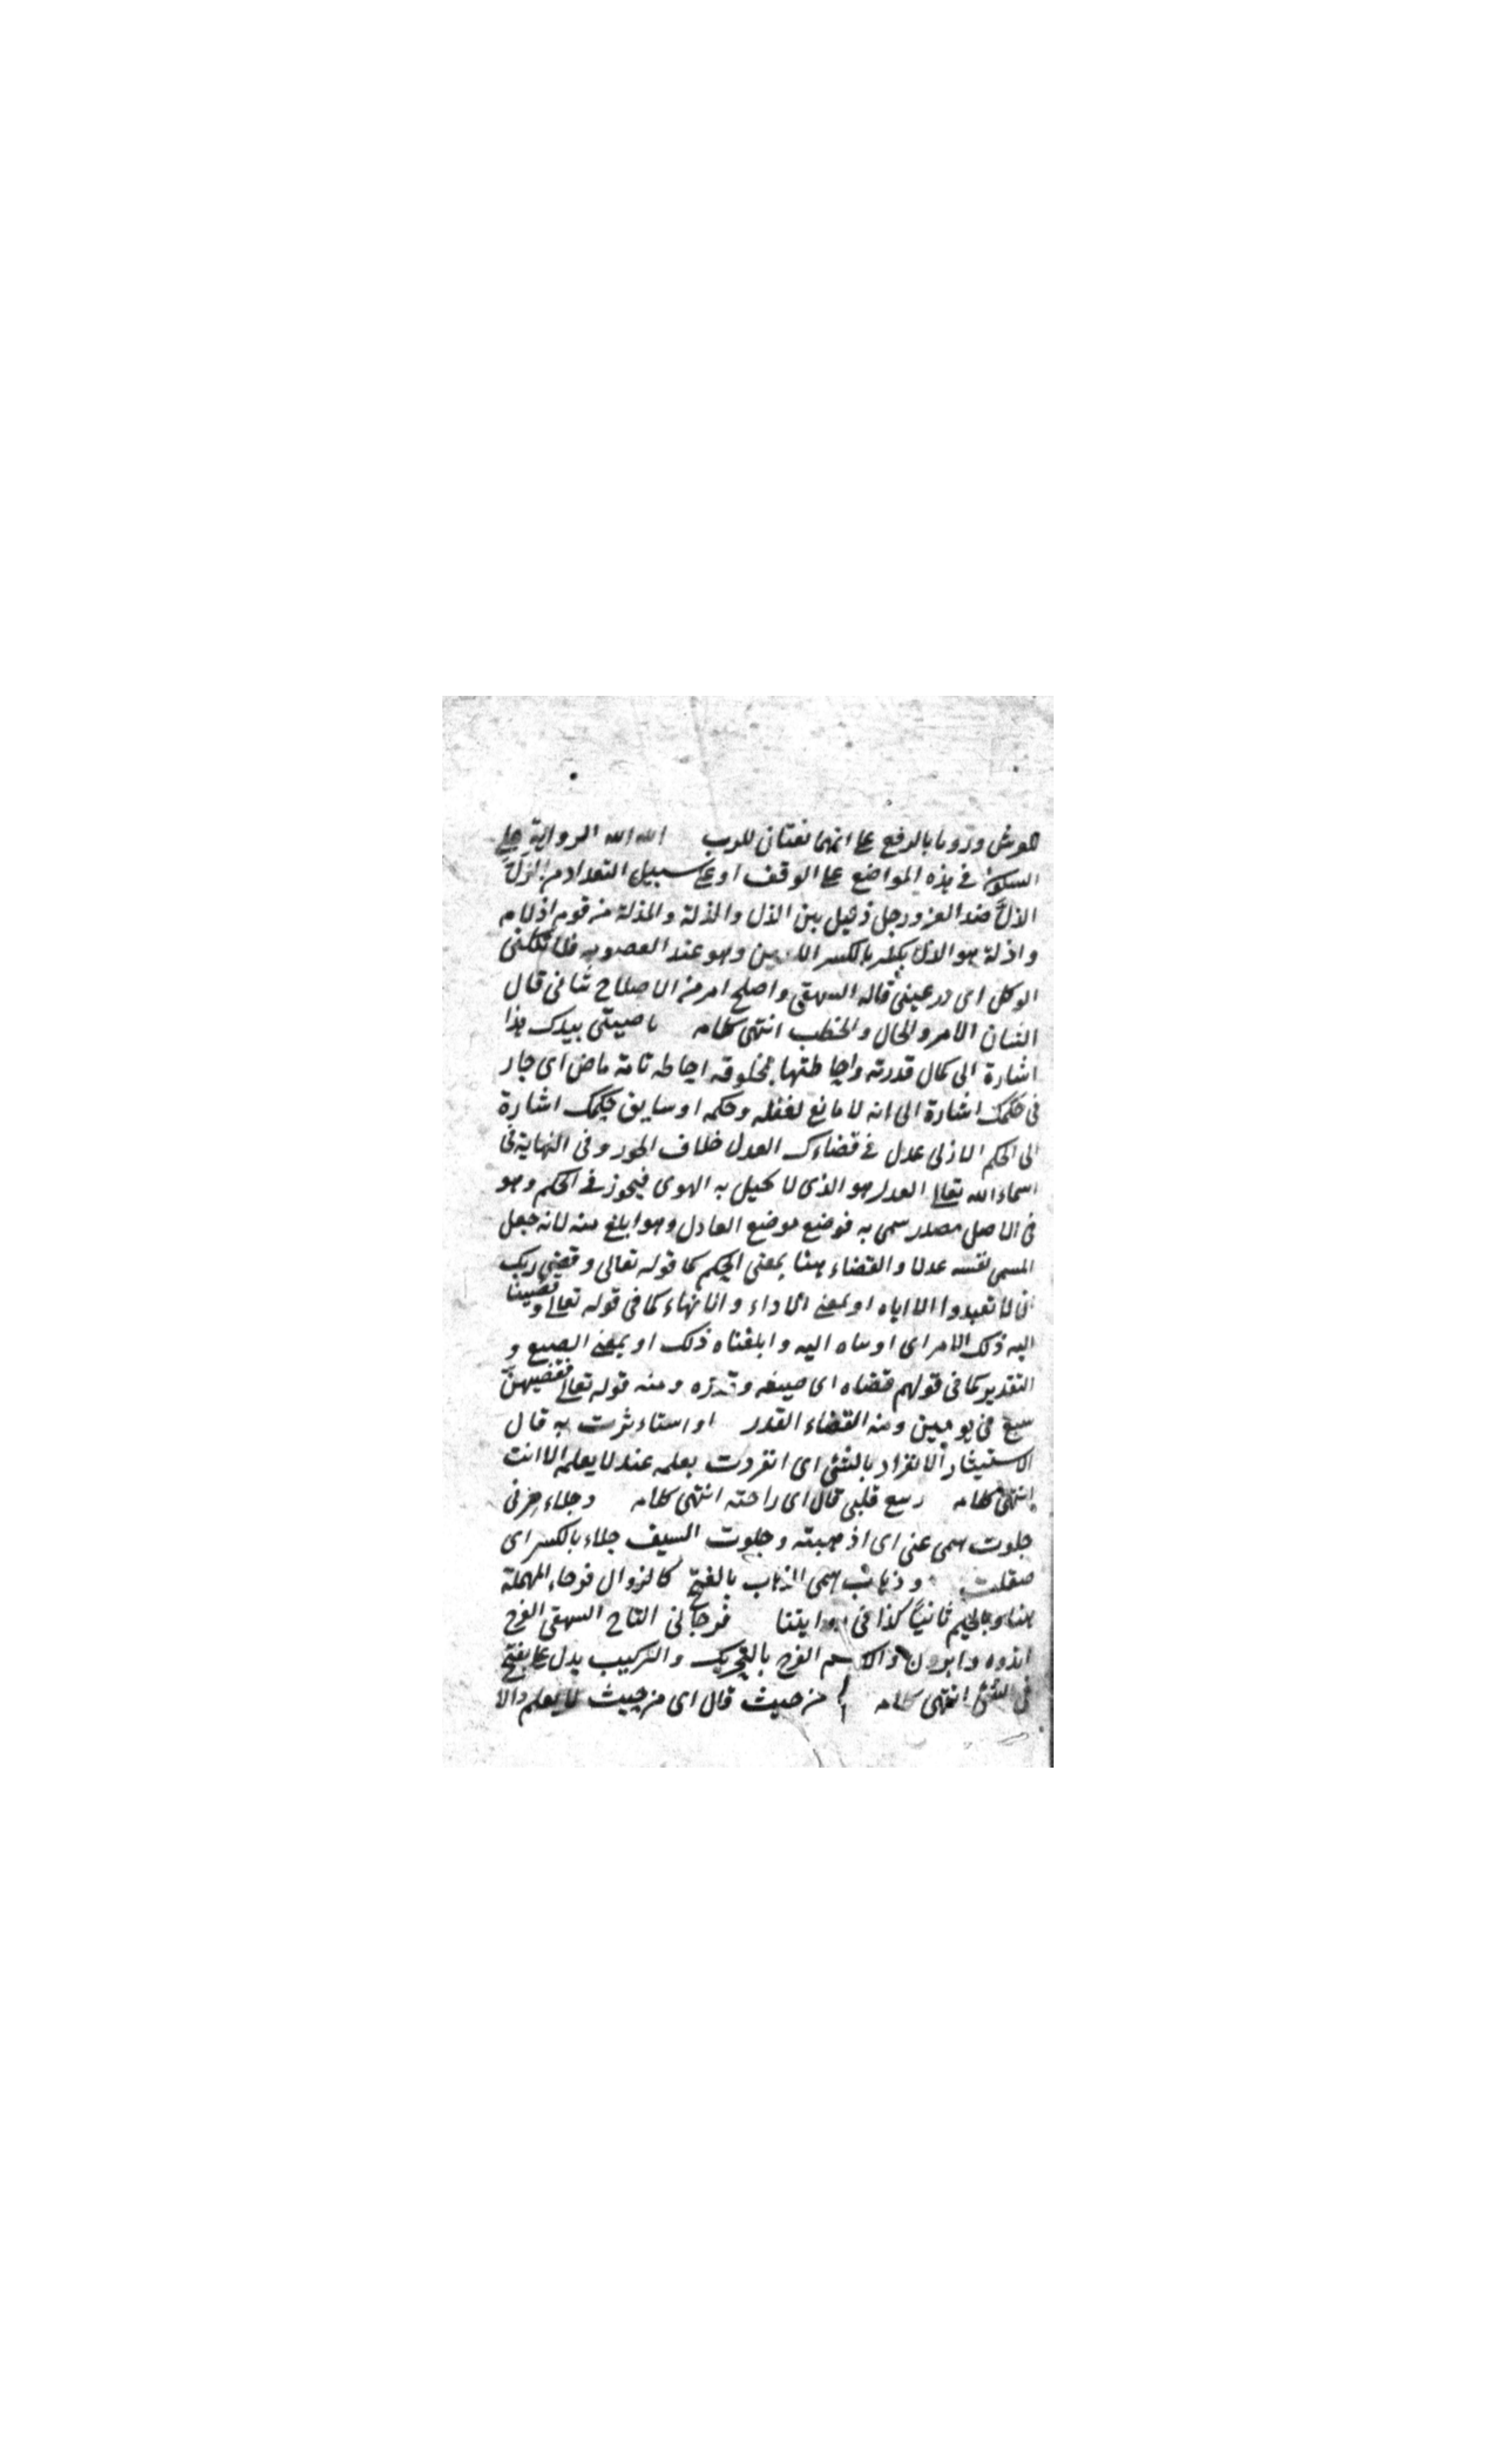 للعرش ورويا بالرفع على انهما نعتان للرب الله الله الرواية على
السكون في هذه المواضع على الوقف او على سبيل التعداد من الذل
الذل ضد العز ورجل ذليل بين الذل والمذلة والمذلة من قوم اذلاء
واذلة هو الذل بكسر بالكسر اللين وهو عند الصعوبه فلا تكلني
الوكل اى درعيني قاله السهقي واصلح امر من الاصلاح شاني قال
الشان الامر والحال والخطب انتهى كلامه ناصيتى بيدك هذا
اشارة الى كمال قدرته واحاطتها بمخلوقه احاطه تامة ماض اى جار
في حكمك اشارة الى انه لا مانع لفعله وحكمه او سابق حكمك اشارة
الى الحكم الازلى عدل في قضاءك العدل خلاف الجور وفى النهاية فى
اسماء الله تعالى العدل هو الذى لا يميل به الهوى فيجوز في الحكم وهو
فى الاصل مصدر سمى به فوضع موضع العادل وهو ابلغ منه لانه جعل
المسمى نفسه عدلا والقضاء هنا بمعنى الحكم كما قوله تعالى وقضى ربك
ان لا تعبدوا الا اياه او بمعنى الاداء والانهاء كما فى قوله تعالى وقضينا
اليه ذلك الامر اى اوساه اليه وابلغناه ذلك او بمعنى الصنع و
التقدير كما فى قولهم قضاه اى صنعه وقدره ومنه قوله تعالى فقضيهن
سبع فى يومين ومنه القضاء القدر او استاءثرت به قال
الاستيثار الانفراد بالشئ اى انفردت بعلمه عندك لا يعلمه الا انت
انتهى كلامه ربيع قلبى قال اى راحته انتهى كلامه وجلاء حزنى
جلوت همى عنى اى اذهبته وجلوت السيف جلاء بالكسر اى
صقلت وذهاب همى الذهاب بالفتح كالزوال فرحا بالمهملة
هنا وبالجيم ثانياً كذا فى روايتنا فرجا فى التاج السهقى الفرج
اندوه وابردن والاسم الفرج بالتحريك والتركيب يدل على تفتح
فى الشئ انتهى كلامه من حيث قال اى من حيث لا يعلم والا